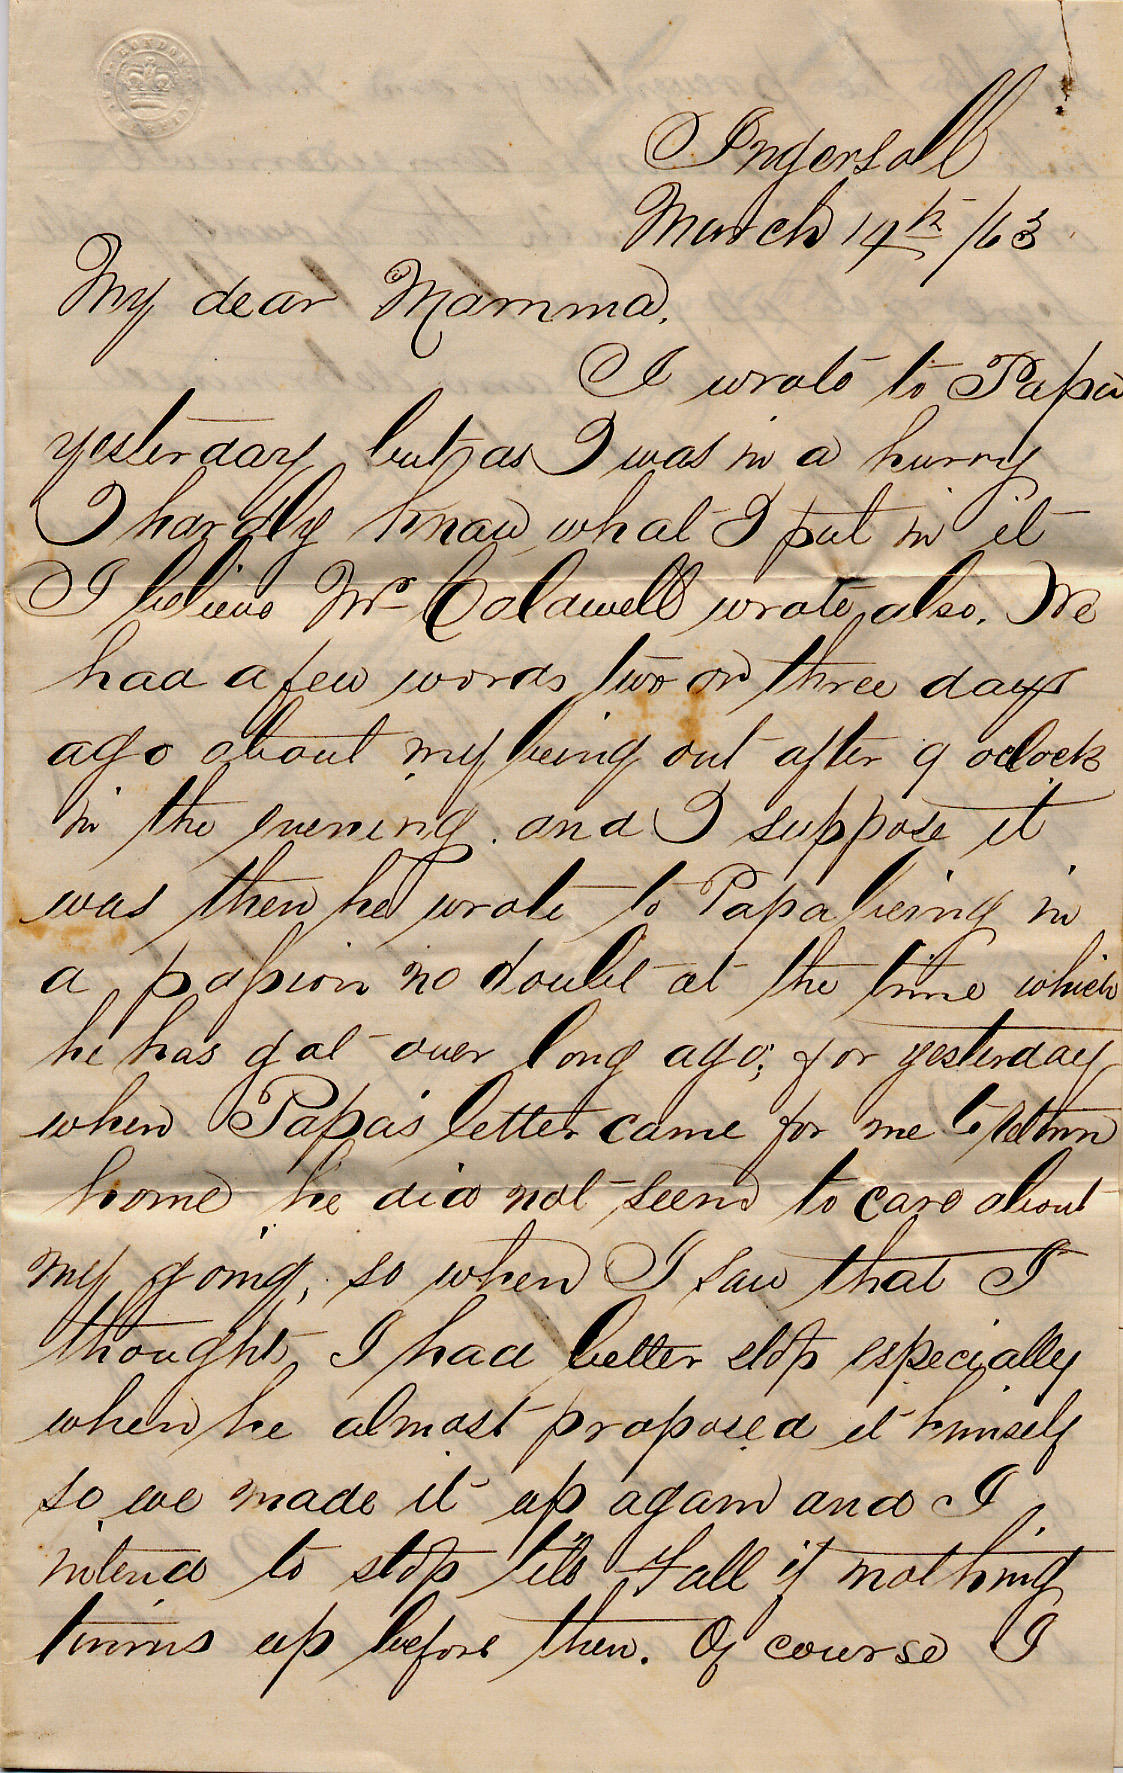 LONDON
Ingersoll
March 14th /63
My dear Mamma,
I wrote to Papa
yesterday but as I was in a hurry
I hardly know what I put in it
I believe Mr Caldwell wrote also. We
had a few words two or three days
ago about my being out after 9 oclock
in the evening. and I suppose it
was then he wrote to Papa being in
a passion no doubt at the time which
he has got over long ago; for yesterday
when Papa's letter came for me to return
home he did not seem to care about
my going, so when I saw that I
thought I had better stop especially
when he almost proposed it himself
so we made it up again and I
intend to stop till Fall if nothing
turns up before then. Of course I